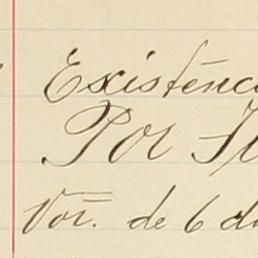 Existênc
Por F
Vor. de 6 d